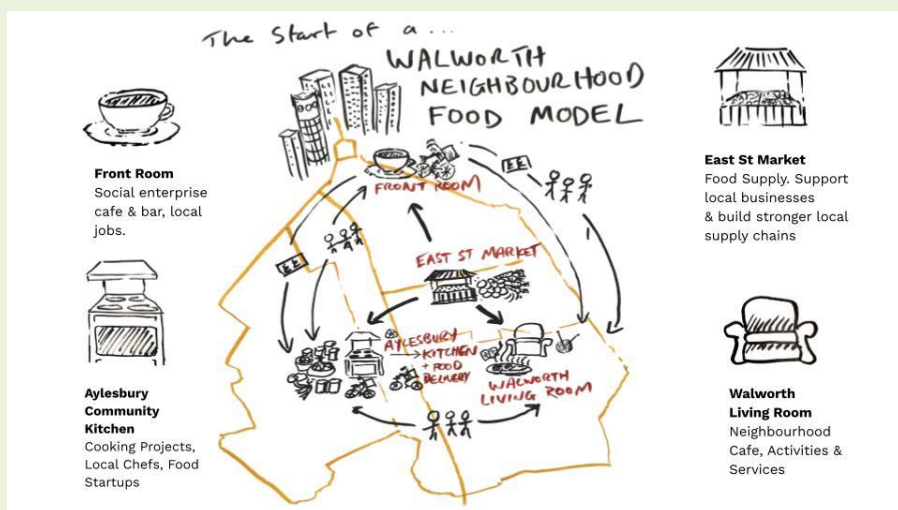 The Start of a ...
WALWORTH
NEIGHBOURHOOD
FOOD MODEL
Front Room
Social enterprise
cafe & bar, local
jobs.
Aylesbury
Community
Kitchen
Cooking Projects,
Local Chefs, Food
Startups
FRONT ROOM
££
££
EAST ST MARKET
AYLESBURY
KITCHEN
+ FOOD
DELIVERY
WALWORTH
LIVING ROOM
East St Market
Food Supply. Support
local businesses
& build stronger local
supply chains
Walworth
Living Room
Neighbourhood
Cafe, Activities &
Services